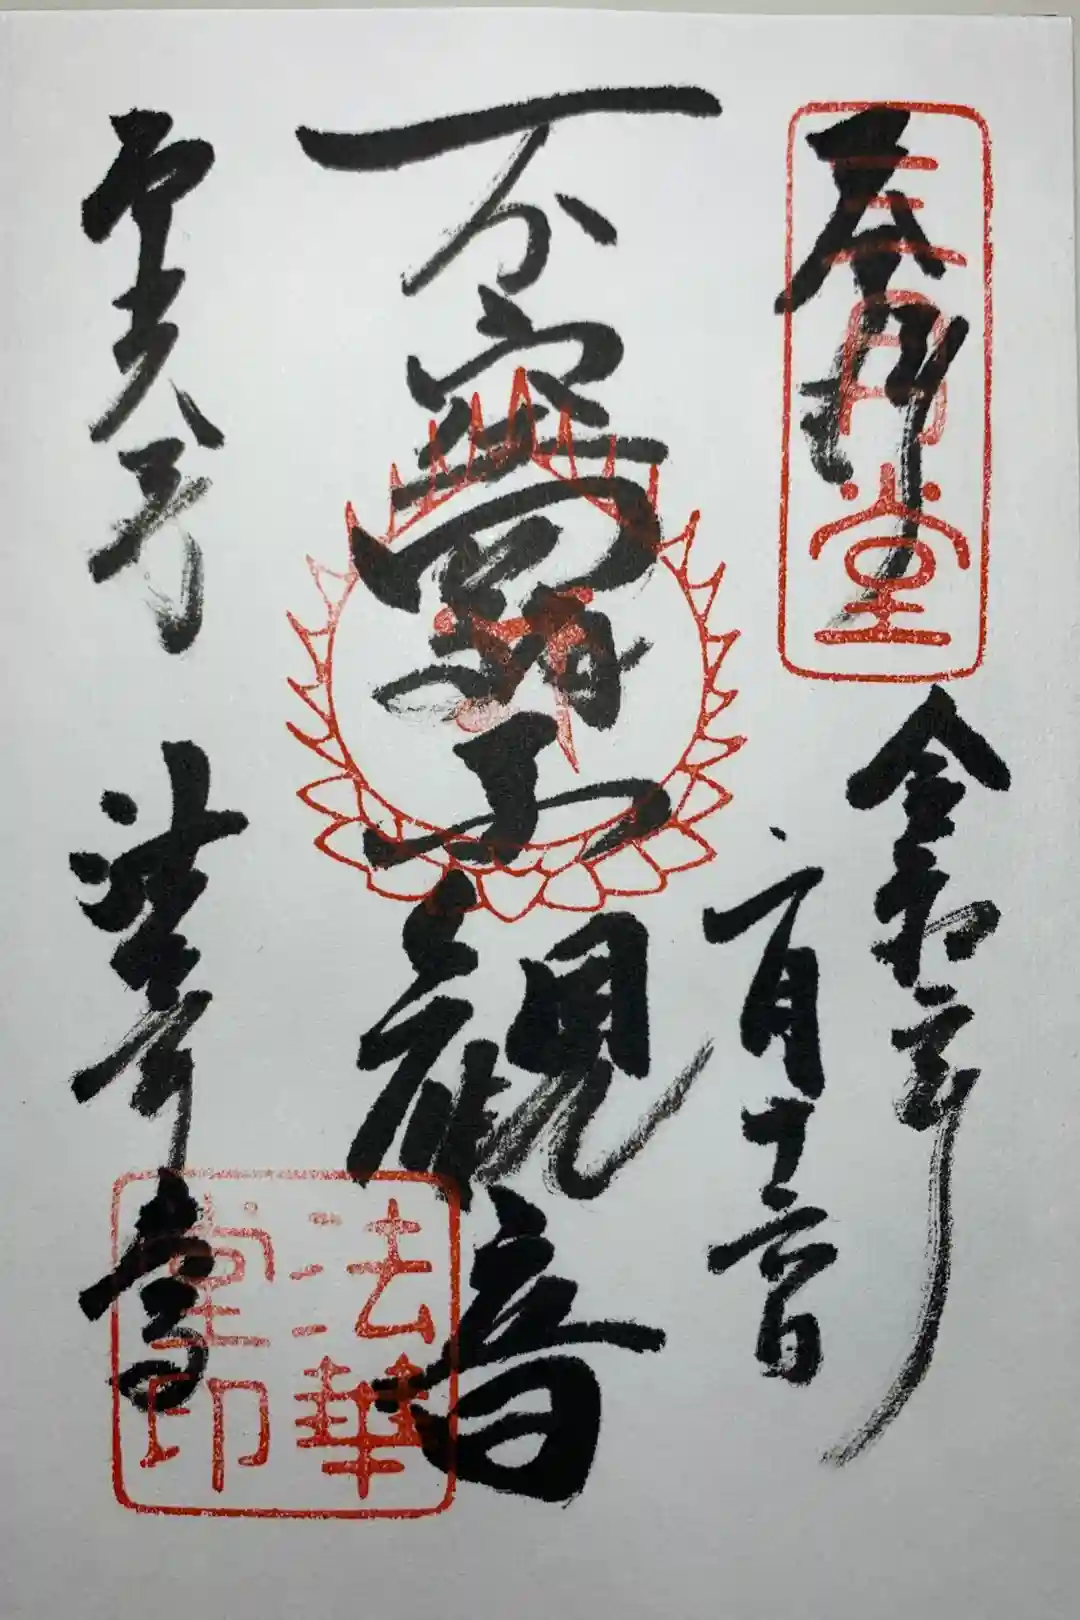 奉拝
三月堂
令和元年
月十六日
不空羂索観音
東大寺
法華堂
法華
堂印